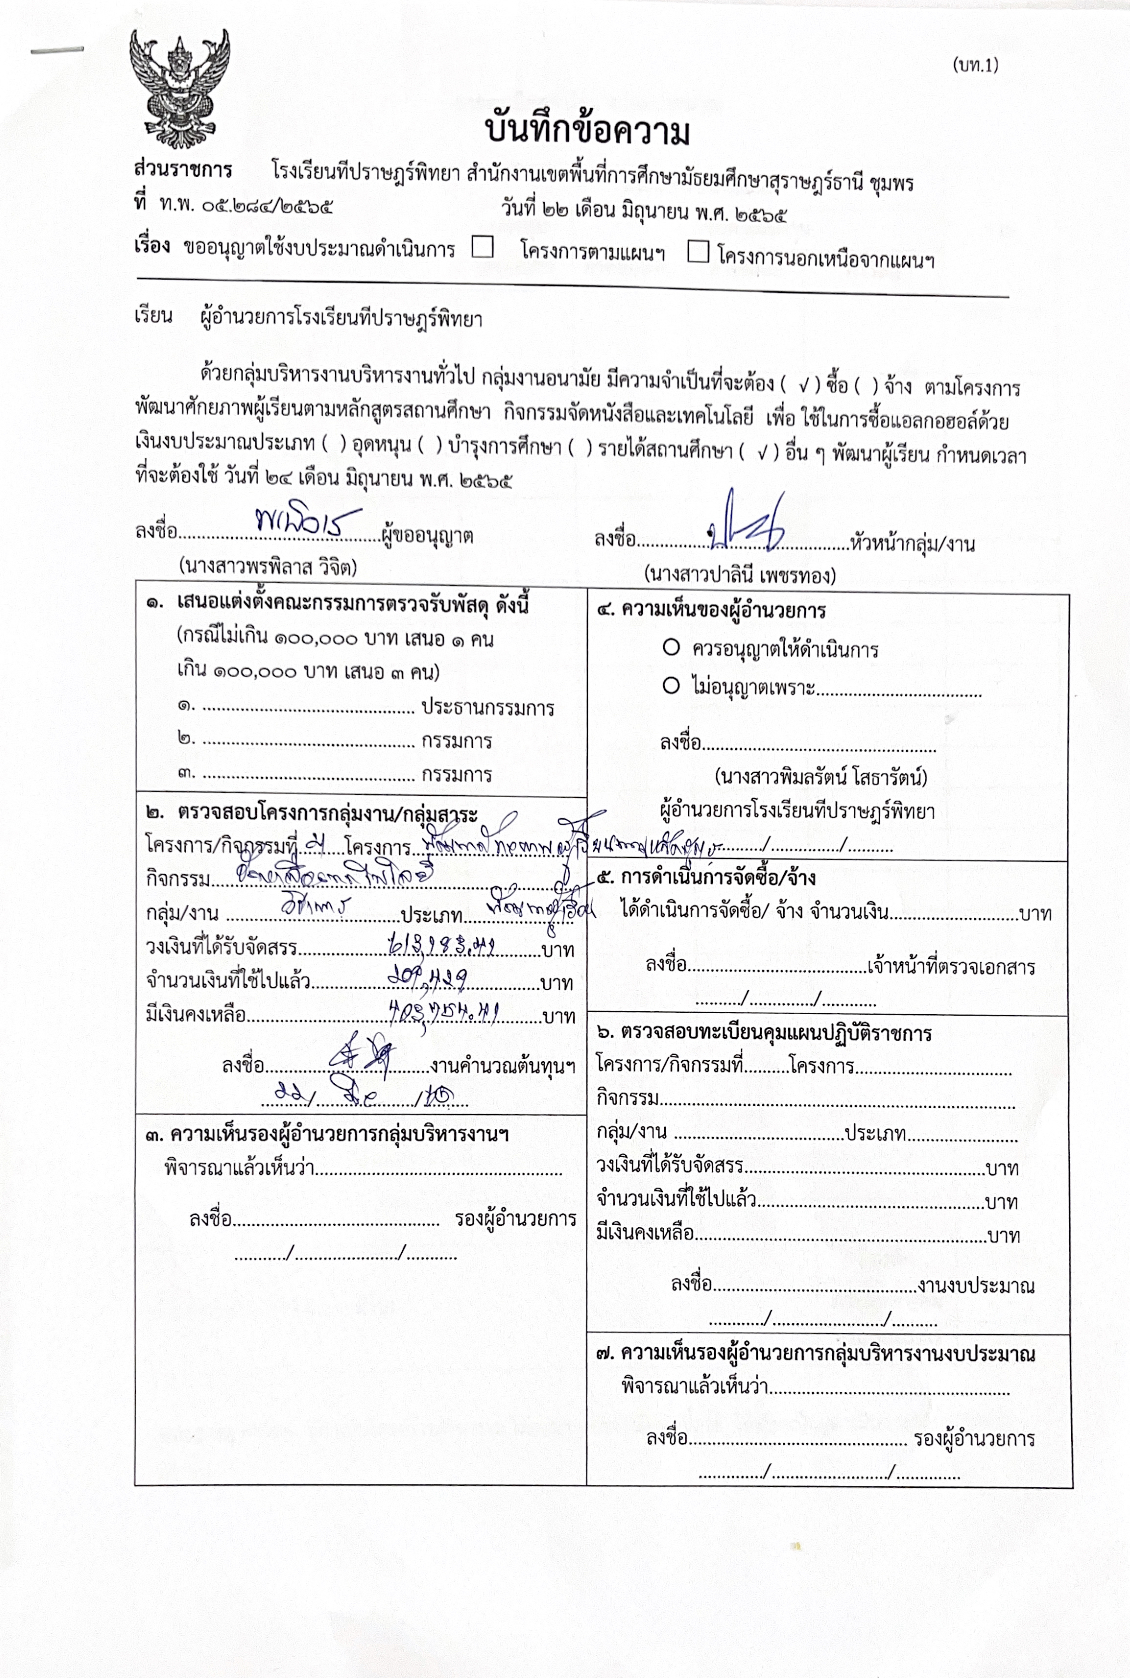 (บท.1)
บันทึกข้อความ
ส่วนราชการ โรงเรียนทีปราษฎร์พิทยา สำนักงานเขตพื้นที่การศึกษามัธยมศึกษาสุราษฎร์ธานี ชุมพร
ที่ ท.พ. ๐๕.๒๘๔/๒๕๖๕ วันที่ ๒๒ เดือน มิถุนายน พ.ศ. ๒๕๖๕
เรื่อง ขออนุญาตใช้งบประมาณดำเนินการ ☐ โครงการตามแผนฯ ☐ โครงการนอกเหนือจากแผนฯ
เรียน ผู้อำนวยการโรงเรียนทีปราษฎร์พิทยา
ด้วยกลุ่มบริหารงานบริหารงานทั่วไป กลุ่มงานอนามัย มีความจำเป็นที่จะต้อง ( √ ) ซื้อ ( ) จ้าง ตามโครงการ
พัฒนาศักยภาพผู้เรียนตามหลักสูตรสถานศึกษา กิจกรรมจัดหนังสือและเทคโนโลยี เพื่อ ใช้ในการซื้อแอลกอฮอล์ด้วย
เงินงบประมาณประเภท ( ) อุดหนุน ( ) บำรุงการศึกษา ( ) รายได้สถานศึกษา ( √ ) อื่น ๆ พัฒนาผู้เรียน กำหนดเวลา
ที่จะต้องใช้ วันที่ ๒๔ เดือน มิถุนายน พ.ศ. ๒๕๖๕
ลงชื่อ..........ผู้ขออนุญาต ลงชื่อ..........หัวหน้ากลุ่ม/งาน
(นางสาวพรพิลาส วิจิต) (นางสาวปาลินี เพชรทอง)
๑. เสนอแต่งตั้งคณะกรรมการตรวจรับพัสดุ ดังนี้
(กรณีไม่เกิน ๑๐๐,๐๐๐ บาท เสนอ ๑ คน
เกิน ๑๐๐,๐๐๐ บาท เสนอ ๓ คน)
๑. .......... ประธานกรรมการ
๒. .......... กรรมการ
๓. .......... กรรมการ
๒. ตรวจสอบโครงการกลุ่มงาน/กลุ่มสาระ
โครงการ/กิจกรรมที่.....โครงการ พัฒนาศักยภาพผู้เรียนตามหลักสูตร
กิจกรรม..........
กลุ่ม/งาน วิชาการ ประเภท พัฒนาผู้เรียน
วงเงินที่ได้รับจัดสรร..........บาท
จำนวนเงินที่ใช้ไปแล้ว..........บาท
มีเงินคงเหลือ..........บาท
ลงชื่อ..........งานคำนวณต้นทุนฯ
๒๒/ มิย /
๓. ความเห็นรองผู้อำนวยการกลุ่มบริหารงานฯ
พิจารณาแล้วเห็นว่า..........
ลงชื่อ.......... รองผู้อำนวยการ
........../........../..........
๔. ความเห็นของผู้อำนวยการ
○ ควรอนุญาตให้ดำเนินการ
○ ไม่อนุญาตเพราะ..........
ลงชื่อ..........
(นางสาวพิมลรัตน์ โสธารัตน์)
ผู้อำนวยการโรงเรียนทีปราษฎร์พิทยา
........../........../..........
๕. การดำเนินการจัดซื้อ/จ้าง
ได้ดำเนินการจัดซื้อ/ จ้าง จำนวนเงิน..........บาท
ลงชื่อ..........เจ้าหน้าที่ตรวจเอกสาร
........../........../..........
๖. ตรวจสอบทะเบียนคุมแผนปฏิบัติราชการ
โครงการ/กิจกรรมที่.........โครงการ..........
กิจกรรม..........
กลุ่ม/งาน ..........ประเภท..........
วงเงินที่ได้รับจัดสรร..........บาท
จำนวนเงินที่ใช้ไปแล้ว..........บาท
มีเงินคงเหลือ..........บาท
ลงชื่อ..........งานงบประมาณ
........../........../..........
๗. ความเห็นรองผู้อำนวยการกลุ่มบริหารงานงบประมาณ
พิจารณาแล้วเห็นว่า..........
ลงชื่อ.......... รองผู้อำนวยการ
........../........../..........